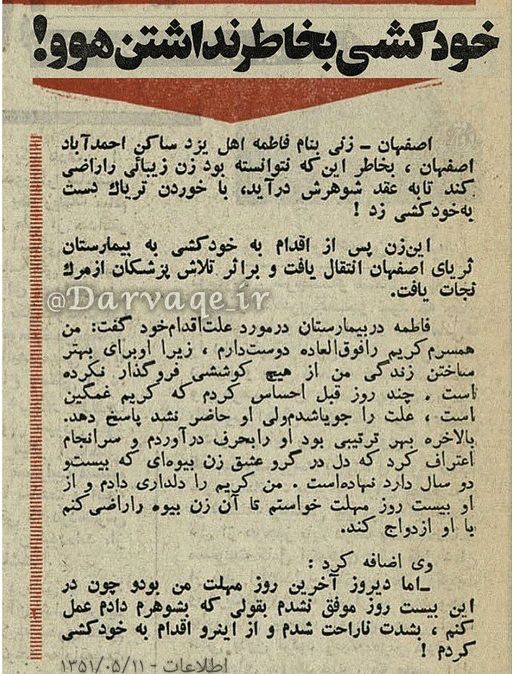 خودکشی بخاطر نداشتن هوو!
اصفهان ـ زنی بنام فاطمه اهل یزد ساکن احمدآباد
اصفهان ، بخاطر این‌که نتوانسته بود زن زیبائی راراضی
کند تابه عقد شوهرش درآید، با خوردن تریاك دست
به‌خودکشی زد !
این‌زن پس از اقدام به خودکشی به بیمارستان
ثریای اصفهان انتقال یافت و براثر تلاش پزشکان ازمرك
نجات یافت.
@Darvaqe_ir
فاطمه دربیمارستان درمورد علت‌اقدام‌خود گفت: من
همسرم‌کریم رافوق‌العاده دوست‌دارم ، زیرا اوبرای بهتر
ساختن زندگی من از هیچ کوششی فروگذار نکرده
است . چند روز قبل احساس کردم که کریم غمگین
است ، علت را جویاشدم‌ولی او حاضر نشد پاسخ دهد.
بالاخره بهر ترتیبی بود او رابحرف درآوردم و سرانجام
اعتراف کرد که دل در گرو عشق زن بیوه‌ای که بیست‌و
دو سال دارد نهاده‌است . من کریم را دلداری دادم و از
او بیست روز مهلت خواستم تا آن زن بیوه راراضی‌کنم
با او ازدواج کند.
وی اضافه کرد :
ـاما دیروز آخرین روز مهلت من بودو چون در
این بیست روز موفق نشدم بقولی که بشوهرم دادم عمل
کنم ، بشدت ناراحت شدم و از اینرو اقدام به خودکشی
کردم !
اطلاعات - ۱۳۵۱/۰۵/۱۱